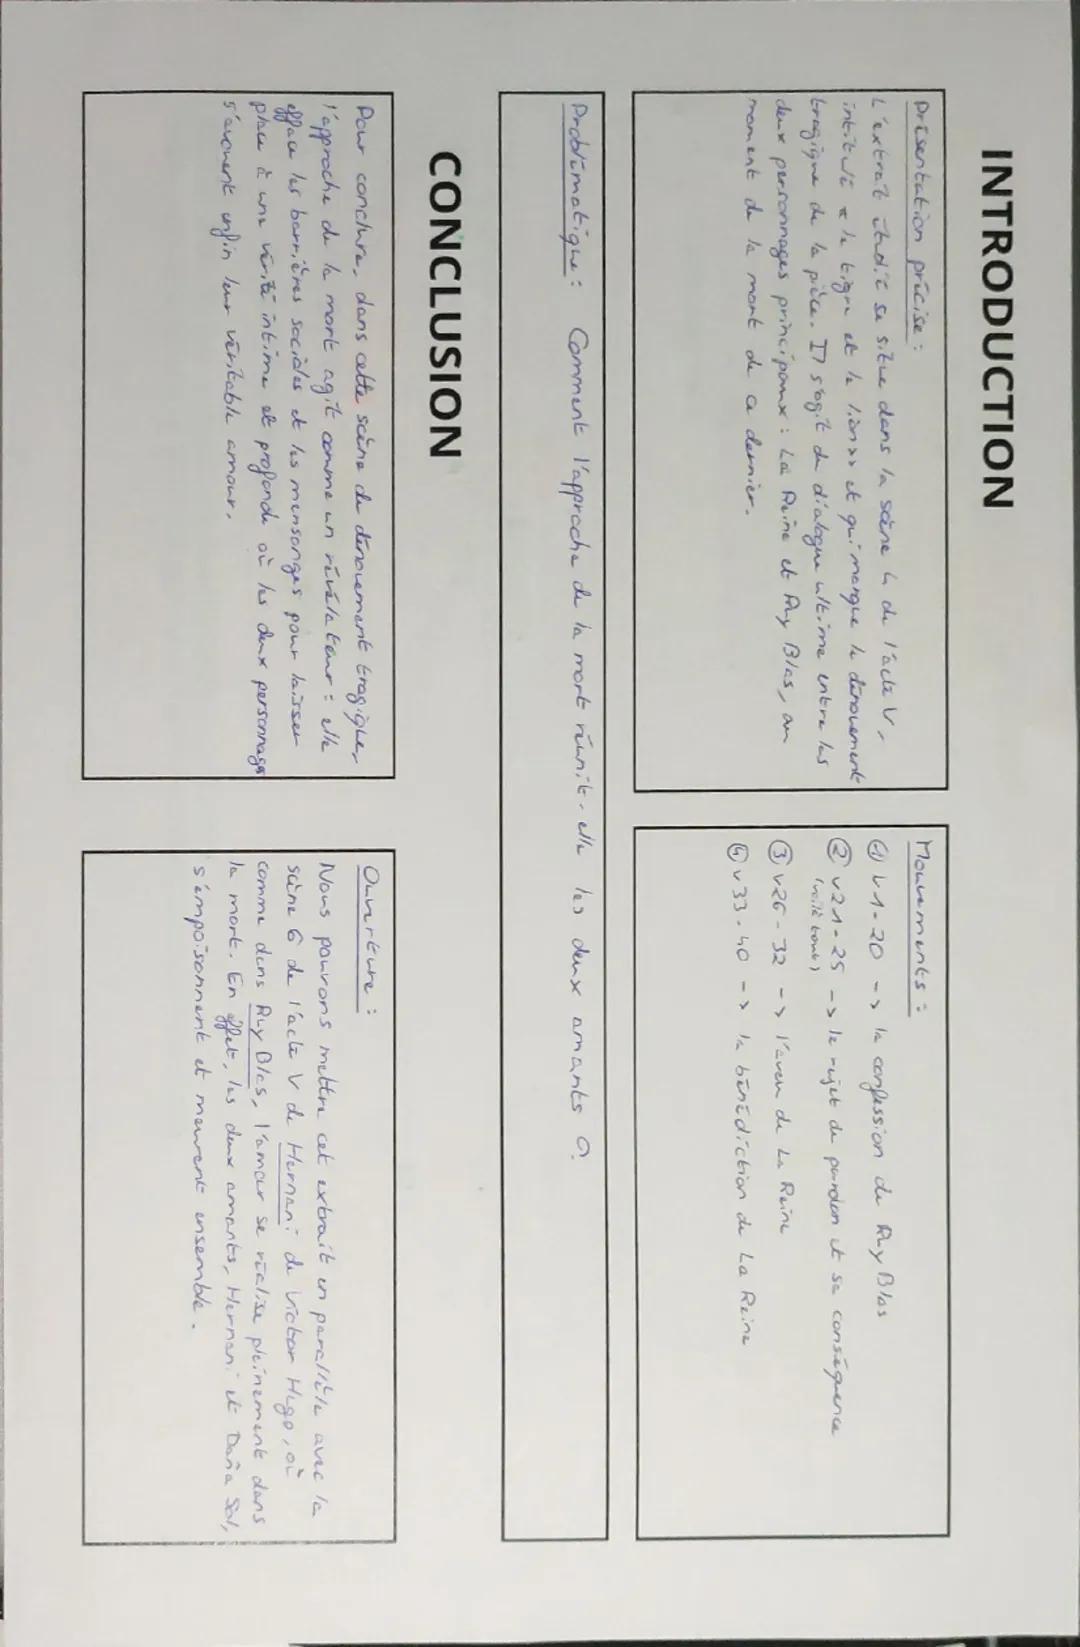 INTRODUCTION
Présentation précise :
L'extrait étudié se situe dans la scène 4 de l'acte V,
intitulé « le tigre et le lion » et qui marque le dénouement
tragique de la pièce. Il s'agit du dialogue ultime entre les
deux personnages principaux : La Reine et Ruy Blas, au
moment de la mort de ce dernier.
Mouvements :
① v1-20 -> la confession de Ruy Blas
② v21-25 -> le rejet du pardon et sa conséquence
③ v26-32 -> l'aveu de La Reine
④ v33-40 -> la bénédiction de La Reine
Problématique : Comment l'approche de la mort réunit-elle les deux amants ?
CONCLUSION
Pour conclure, dans cette scène de dénouement tragique,
l'approche de la mort agit comme un révélateur : elle
efface les barrières sociales et les mensonges pour laisser
place à une vérité intime et profonde où les deux personnages
s'avouent enfin leur véritable amour.
Ouverture :
Nous pouvons mettre cet extrait en parallèle avec la
scène 6 de l'acte V de Hernani de Victor Hugo, où
comme dans Ruy Blas, l'amour se réalise pleinement dans
la mort. En effet, les deux amants, Hernani et Doña Sol,
s'empoisonnent et meurent ensemble.